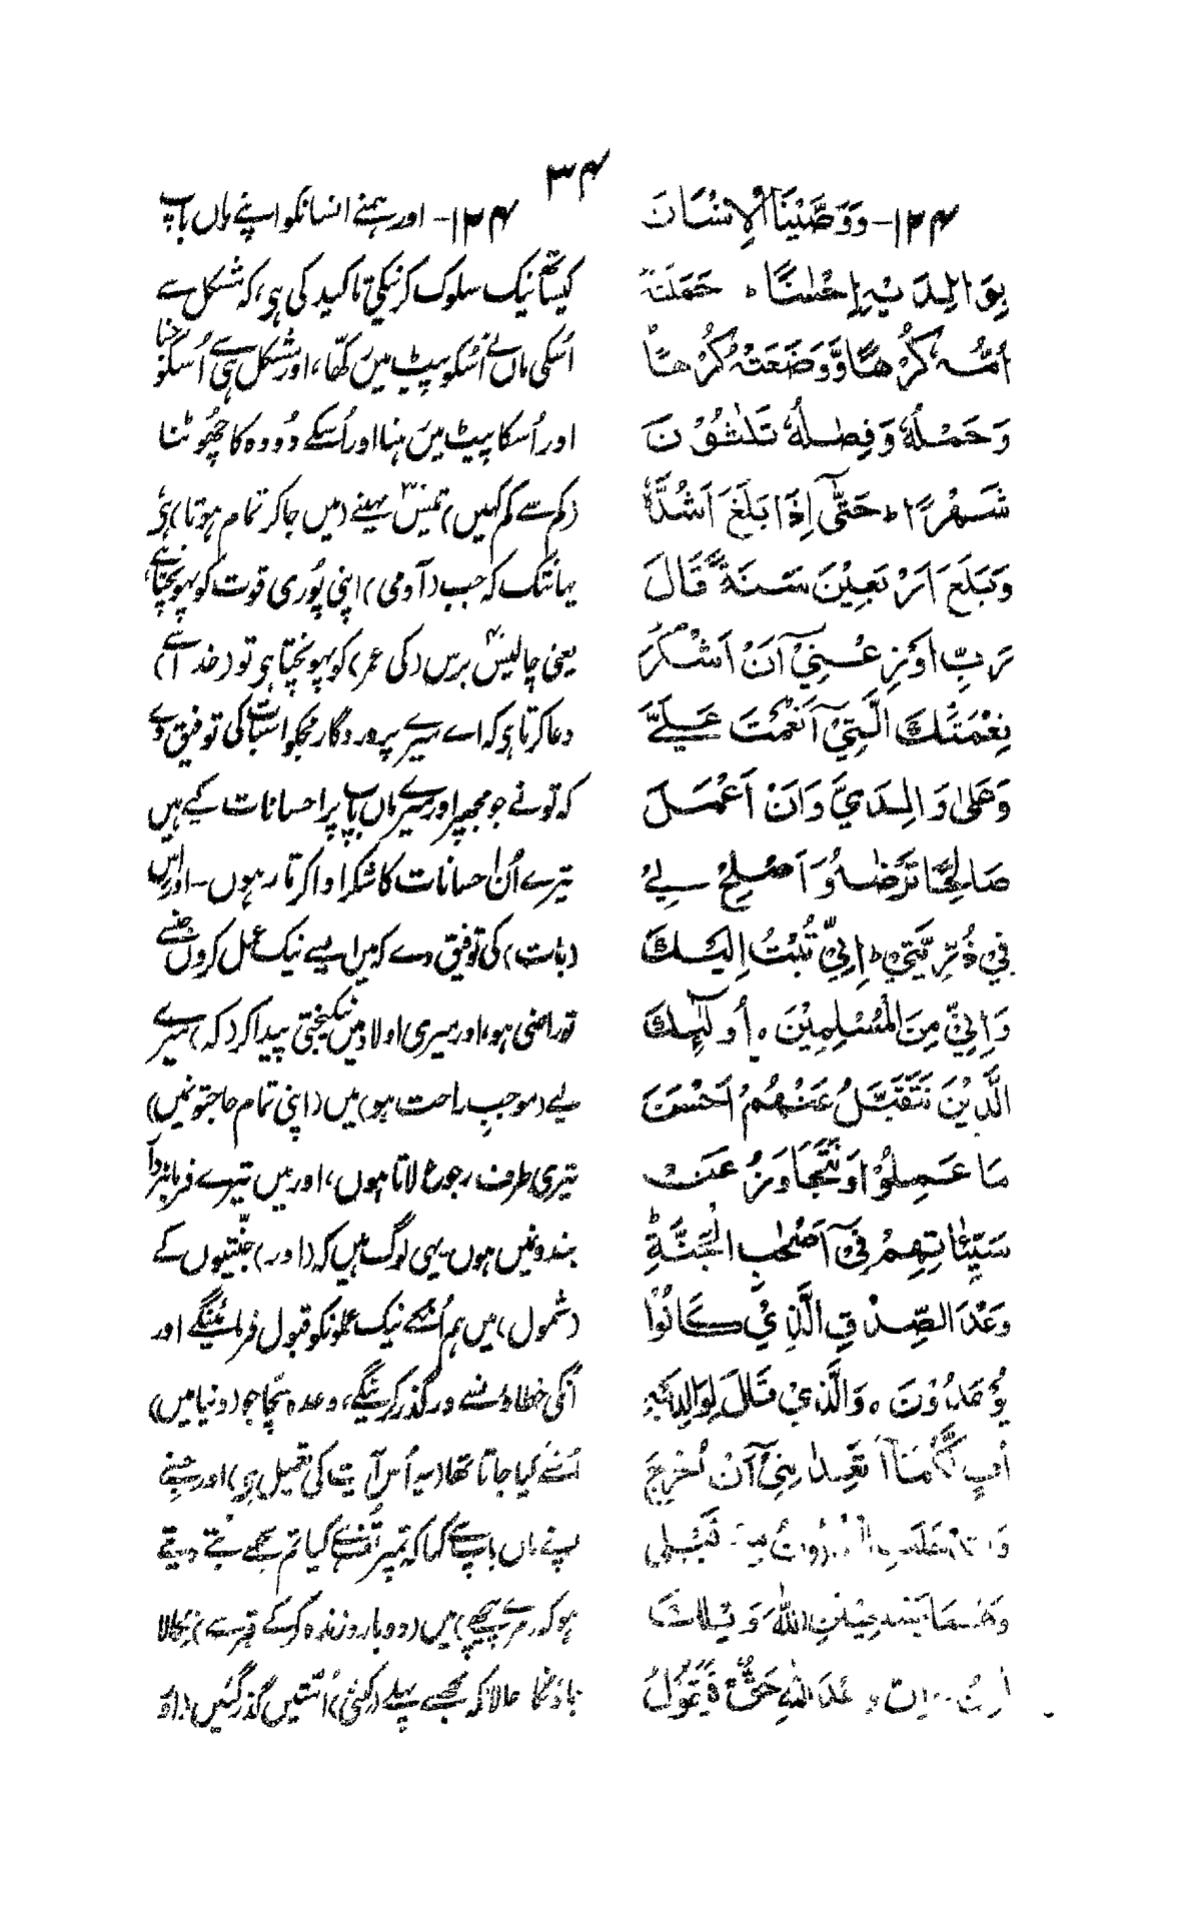 ۳۴
۱۲۴- وَوَصَّيْنَا الْاِنْسَانَ
بِوَالِدَيْهِ اِحْسٰنًا ؕ حَمَلَتْهُ
اُمُّهٗ كُرْهًا وَّوَضَعَتْهُ كُرْهًا
وَحَمْلُهٗ وَفِصٰلُهٗ ثَلٰثُوْنَ
شَهْرًا ؕ حَتّٰٓى اِذَا بَلَغَ اَشُدَّهٗ
وَبَلَغَ اَرْبَعِيْنَ سَنَةً قَالَ
رَبِّ اَوْزِعْنِيْٓ اَنْ اَشْكُرَ
نِعْمَتَكَ الَّتِيْٓ اَنْعَمْتَ عَلَيَّ
وَعَلٰى وَالِدَيَّ وَاَنْ اَعْمَلَ
صَالِحًا تَرْضٰىهُ وَاَصْلِحْ لِيْ
فِيْ ذُرِّيَّتِيْ ؕ اِنِّيْ تُبْتُ اِلَيْكَ
وَاِنِّيْ مِنَ الْمُسْلِمِيْنَ ۰ اُولٰٓئِكَ
الَّذِيْنَ نَتَقَبَّلُ عَنْهُمْ اَحْسَنَ
مَا عَمِلُوْا وَنَتَجَاوَزُ عَنْ
سَيِّاٰتِهِمْ فِيْٓ اَصْحٰبِ الْجَنَّةِ ؕ
وَعْدَ الصِّدْقِ الَّذِيْ كَانُوْا
يُوْعَدُوْنَ ۰ وَالَّذِيْ قَالَ لِوَالِدَيْهِ
اُفٍّ لَّكُمَآ اَتَعِدٰنِنِيْٓ اَنْ اُخْرَجَ
وَقَدْ خَلَتِ الْقُرُوْنُ مِنْ قَبْلِي
وَهُمَا يَسْتَغِيْثٰنِ اللّٰهَ وَيْلَكَ
اٰمِنْ اِنَّ وَعْدَ اللّٰهِ حَقٌّ فَيَقُوْلُ
۱۲۴- اور ہمنے انسانکو اپنے ماں باپ
کیساتھ نیک سلوک کرنیکی تاکید کی ہی، کہ مشکل سے
اسکی ماں نے اُسکو پیٹ میں رکھّا، اور مشکل ہی سے اُسکو جنا
اور اُسکا پیٹ میں رہنا اور اُسکے دُودہ کا چھُوٹنا
(کم سے کم کہیں) تیس۳۰ مہینے (میں جا کر تمام ہوتا) ہی
یہانتک کہ جب (آدمی) اپنی پُوری قوت کو پہونچتا ہے،
یعنی چالیس۴۰ برس (کی عمر) کو پہونچتا ہی تو (خدا سے)
دعا کرتا ہی کہ اے میرے پروردگار مجکو اسبات کی توفیق دے
کہ تو نے جو مجھپر اور میرے ماں باپ پر احسانات کیے ہیں
تیرے اُن احسانات کا شکر ادا کرتا رہوں۔ اور اس
(بات) کی توفیق دے کہ میں ایسے نیک عمل کروں جنسے
تو راضی ہو، اور میری اولاد میں نیکبختی پیدا کر (کہ) میرے
لیے (موجبِ راحت ہو) میں (اپنی تمام حاجتونمیں)
تیری طرف رجوع لاتا ہوں، اور میں تیرے فرمانبردار
بندونمیں ہوں۔ یہی لوگ ہیں کہ (اور) جنّتیوں کے
(شمول) میں ہم اُنکے نیک عملونکو قبول فرمائینگے اور
اُنکی خطاؤنسے درگذر کرینگے، وعدہ سچّا جو (دنیا میں)
اُنسے کیا جاتا تھا (یہ اُس آیت کی تعمیل ہی) اور جسنے
اپنے ماں باپ سے کہا کہ تمپر تُف ہے کیا تم مجھے بتے دیتے
ہو کہ (مرے پیچھے) میں (دوبارہ زندہ کر کے قبر سے) نکالا
جاؤنگا حالانکہ مجھسے پہلے (کتنی) اُمّتیں گذر گئیں (اور